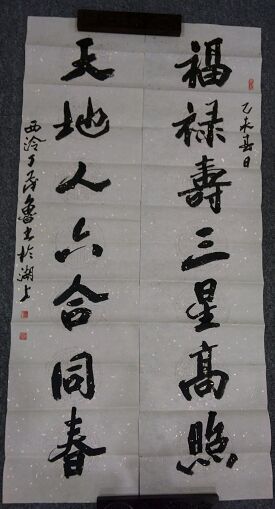 福禄壽三星高照
乙未春日
天地人六合同春
西泠丁茂鲁書於湖上